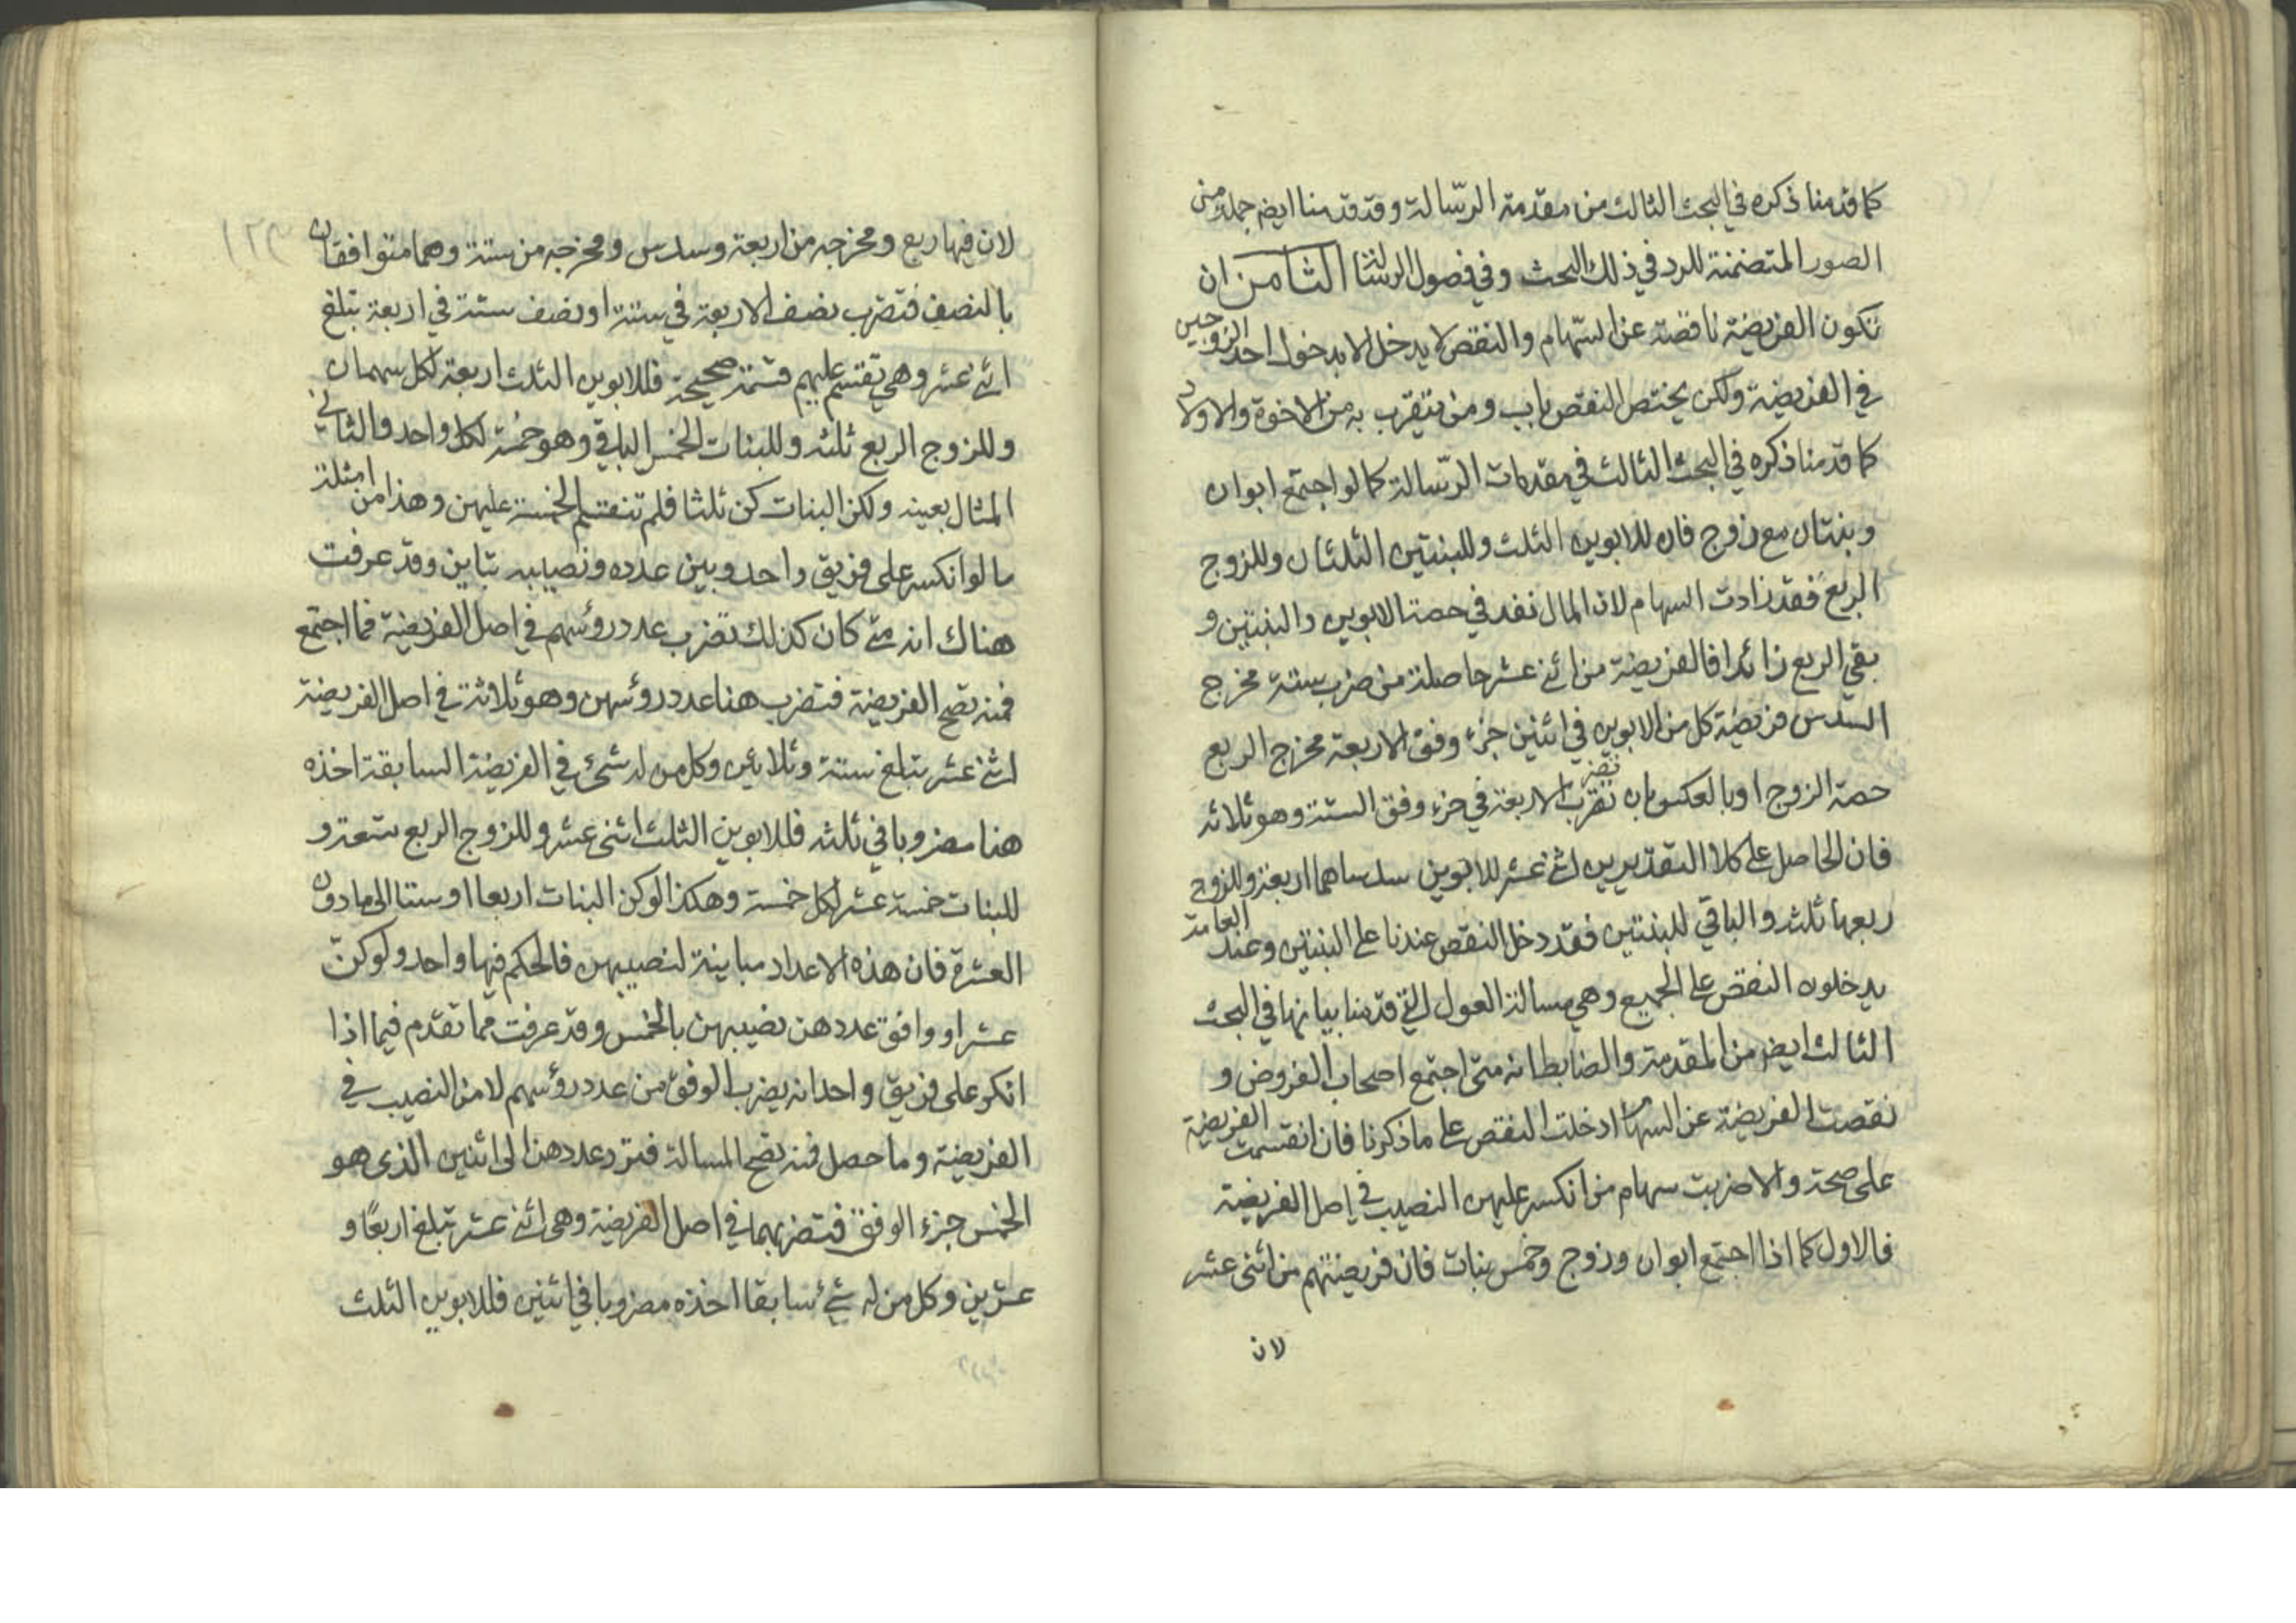 كما قدمنا ذكره في البحث الثالث من مقدمة الرّسالة وقد قدمنا ايضر جملة من
الصور المتضمنة للرد في ذلك البحث وفي فصول الرسالة الثامن ان
تكون الفريضة ناقصة عن السّهام والنقص لا يدخل الا بدخول احد الزوجين
في الفريضة ولكن يختص النقص باب ومن يتقرب به من الاخوة والاولاد
كما قدمنا ذكره في البحث الثالث في مقدمات الرّسالة كما لو اجتمع ابوان
وبنتان مع زوج فان للابوين الثلث وللبنتين الثلثان وللزوج
الربع فقد زادت السهام لان المال نفد في حصة الابوين والبنتين و
بقي الربع زائدا فالفريضة من اثنى عشر حاصلة من ضرب ستة مخرج
السدس فريضة كل من الابوين في اثنين جزء وفق الاربعة مخرج الربع
حصة الزوج او بالعكس بان تضرب الاربعة في جزء وفق الستة وهو ثلاثه
فان الحاصل على كلا التقديرين اثنى عشر للابوين سدساهما اربعة وللزوج
ربعها ثلثه والباقي للبنتين فقد دخل النقص عندنا على البنتين وعند العامة
يدخلون النقص على الجميع وهي مسالة العول التي قدمنا بيانها في البحث
الثالث ايضر من المقدمة والضابط انه متى اجتمع اصحاب الفروض و
نقصت الفريضة عن السهام ادخلت النقص على ما ذكرنا فان انقسمت الفريضة
على صحة والا ضربت سهام من انكسر عليهن النصيب في اصل الفريضة
فالاول كما اذا اجتمع ابوان وزوج وخمس بنات فان فريضتهم من اثنى عشر
لان
لان فيها ربع ومخرجه من اربعة وسدس ومخرجه من ستة وهما متوافقان
بالنصف فتضرب نصف الاربعة في ستة او نصف ستة في اربعة تبلغ
اثنى عشر وهي تقتسم عليهم قسمة صحيحة فللابوين الثلث اربعة لكل سهمان
وللزوج الربع ثلثه وللبنات الخمس الباقي وهو خمسة لكل واحد والثاني
المثال بعينه ولكن البنات كن ثلثا فلم تنقسم الخمسة عليهن وهذا من امثلة
ما لو انكسر على فريق واحد وبين عدده ونصيبه تباين وقد عرفت
هناك انه متى كان كذلك تضرب عدد رؤسهم في اصل الفريضة فما اجتمع
فمنه تصح الفريضة فتضرب هنا عدد رؤسهن وهو ثلاثة في اصل الفريضة
اثنى عشر تبلغ ستة وثلاثين وكل من له شئ في الفريضة السابقة اخذه
هنا مضروبا في ثلثه فللابوين الثلث اثنى عشر وللزوج الربع تسعة و
للبنات خمسة عشر لكل خمسة وهكذا لو كن البنات اربعا او ستا الى ما دون
العشرة فان هذه الاعداد مباينة لنصيبهن فالحكم فيها واحد ولو كنّ
عشرا ووافق عددهن نصيبهن بالخمس وقد عرفت مما تقدم فيما اذا
انكسر على فريق واحد انه يضرب الوفق من عدد رؤسهم لا من النصيب في
الفريضة وما حصل فمنه تصح المسالة فترد عددهن الى اثنين الذى هو
الخمس جزء الوفق فتضربهما في اصل الفريضة وهى اثنى عشر تبلغ اربعًا و
عشرين وكل من له شئ سابقا اخذه مضروبا في اثنين فللابوين الثلث